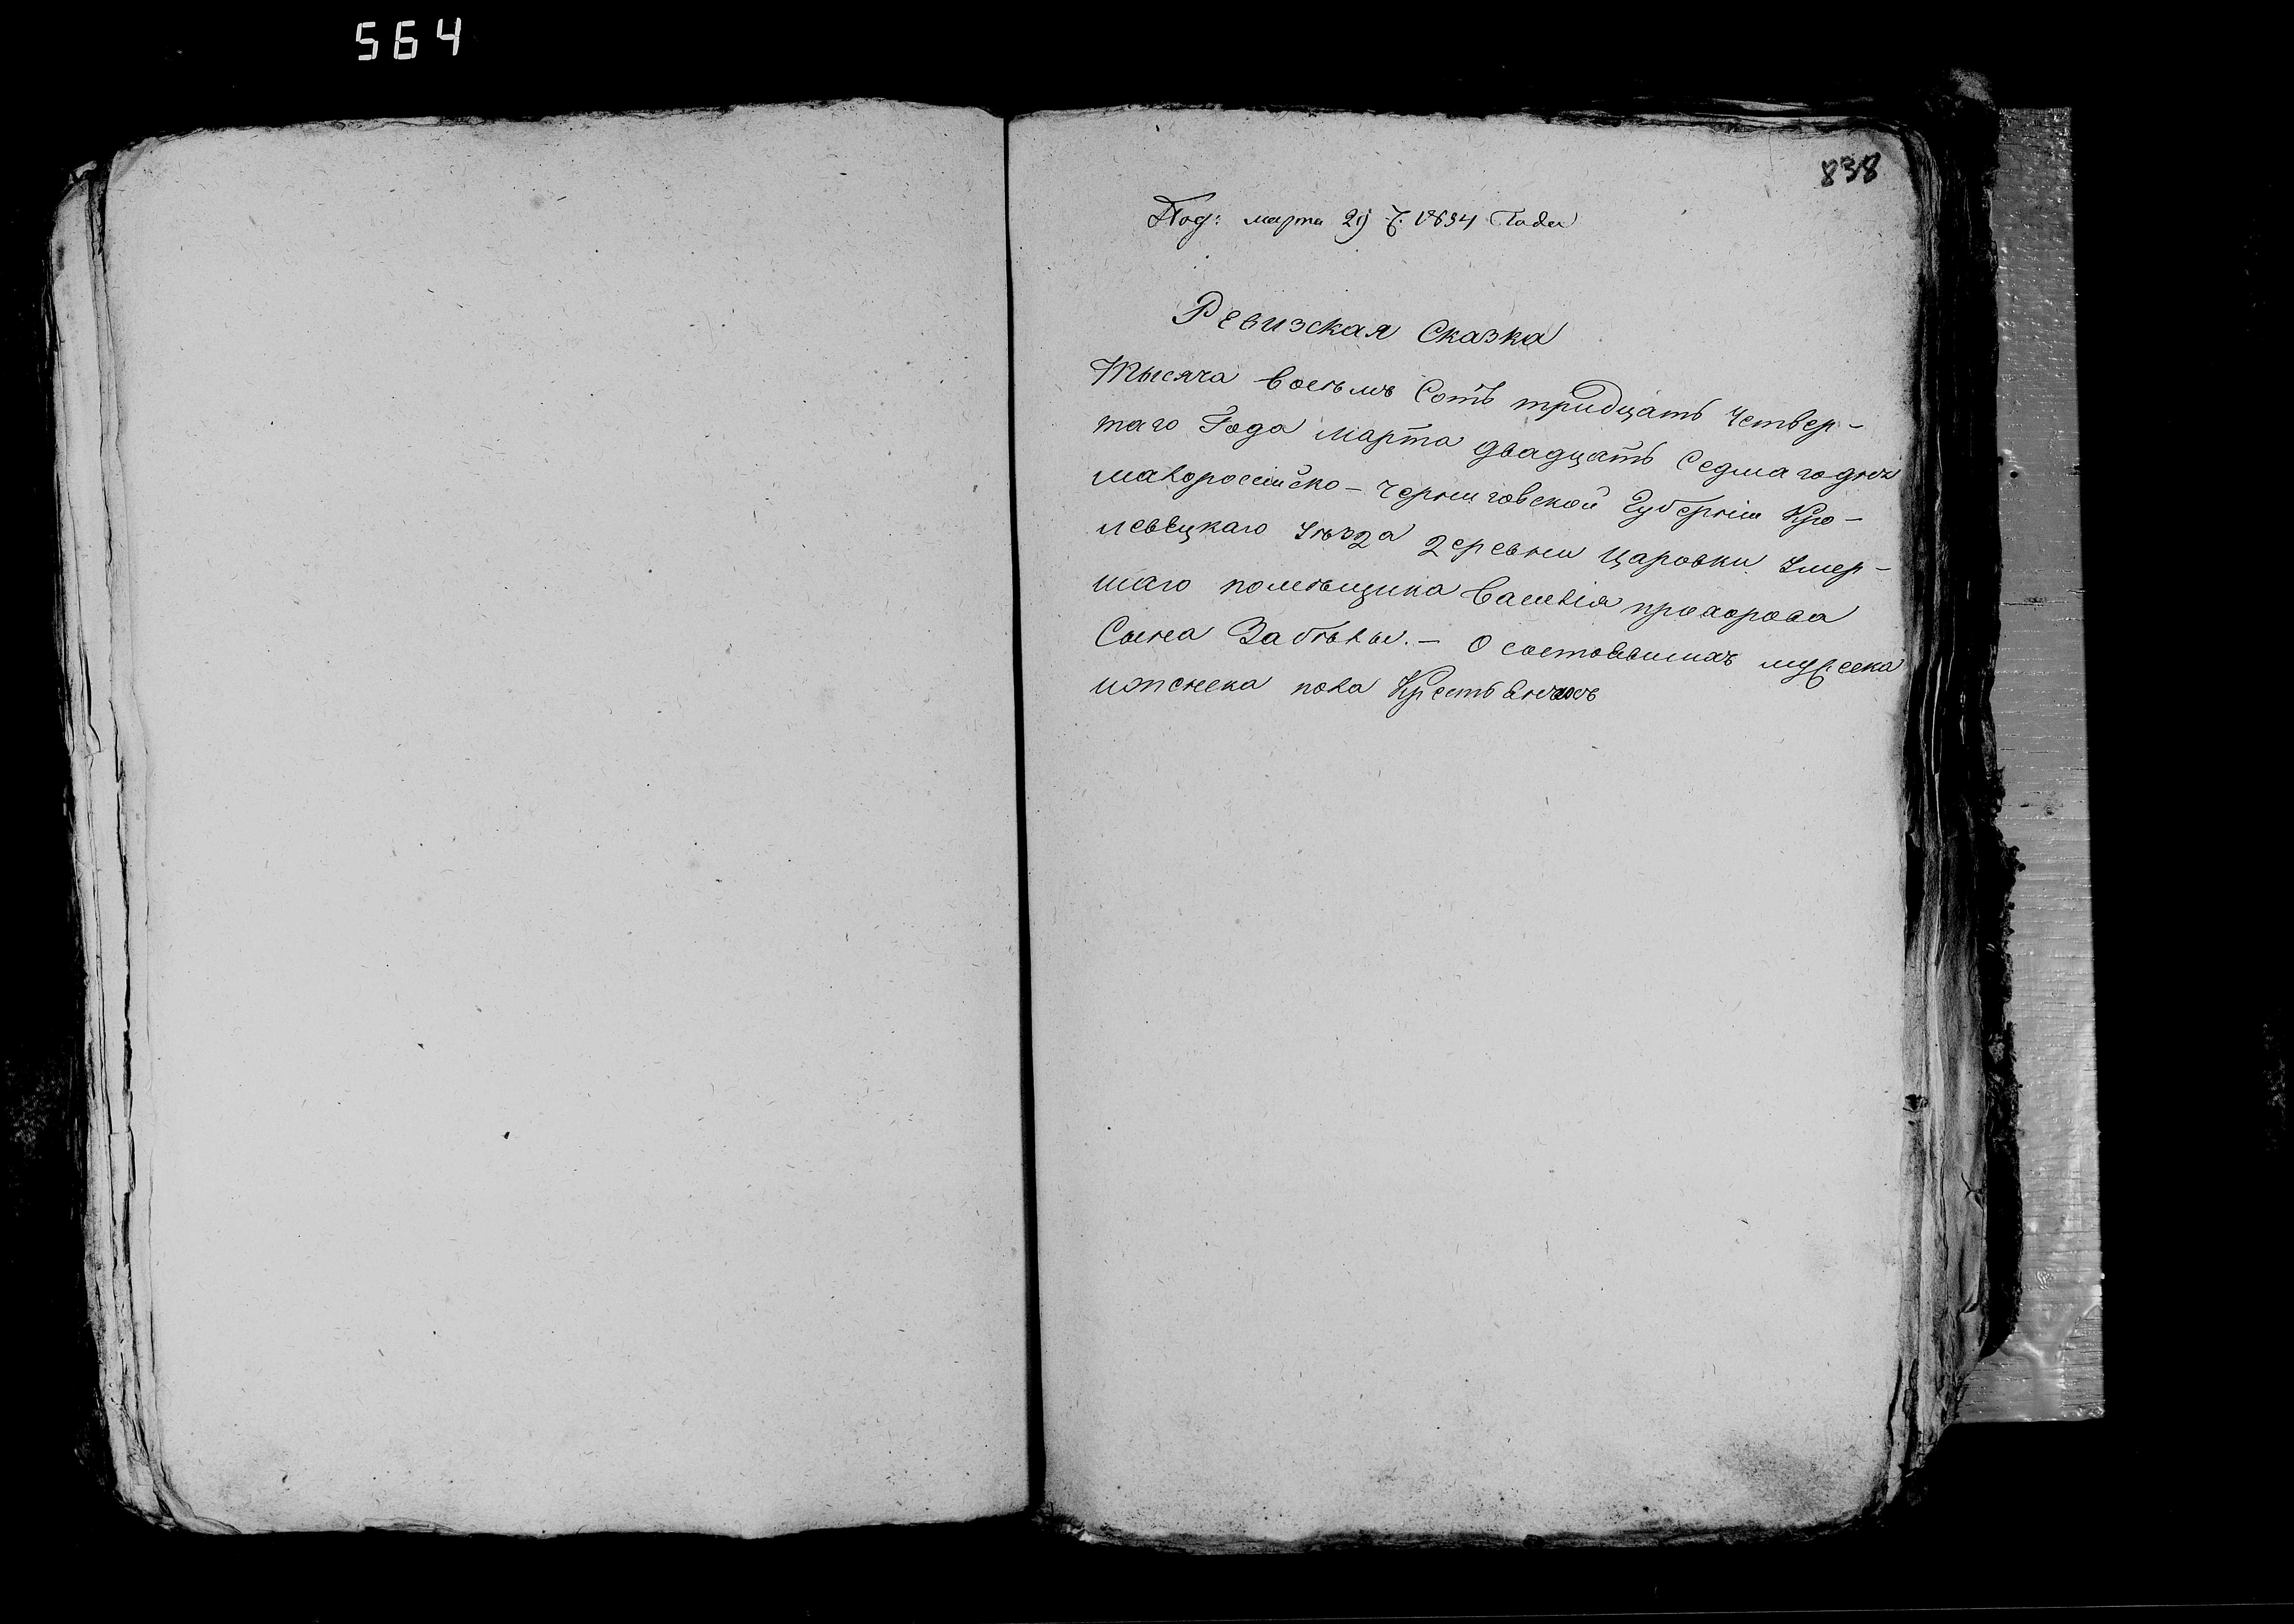 564
838
Под: марта 29 Ч. 1834 Года
Ревизская Сказка
Тысяча восѣмъ Сотъ тридцать Четвер-
таго Года марта двадцать Седмагодня
малоросiйско-Черниговской Губернiи Кро-
левецкаго Уѣзда деревни Царовки Умер-
шаго помѣщика Василiя прохорова
Сына Забѣлы. - О состоявшихъ муҗеска
иженска пола Крестьянехъ